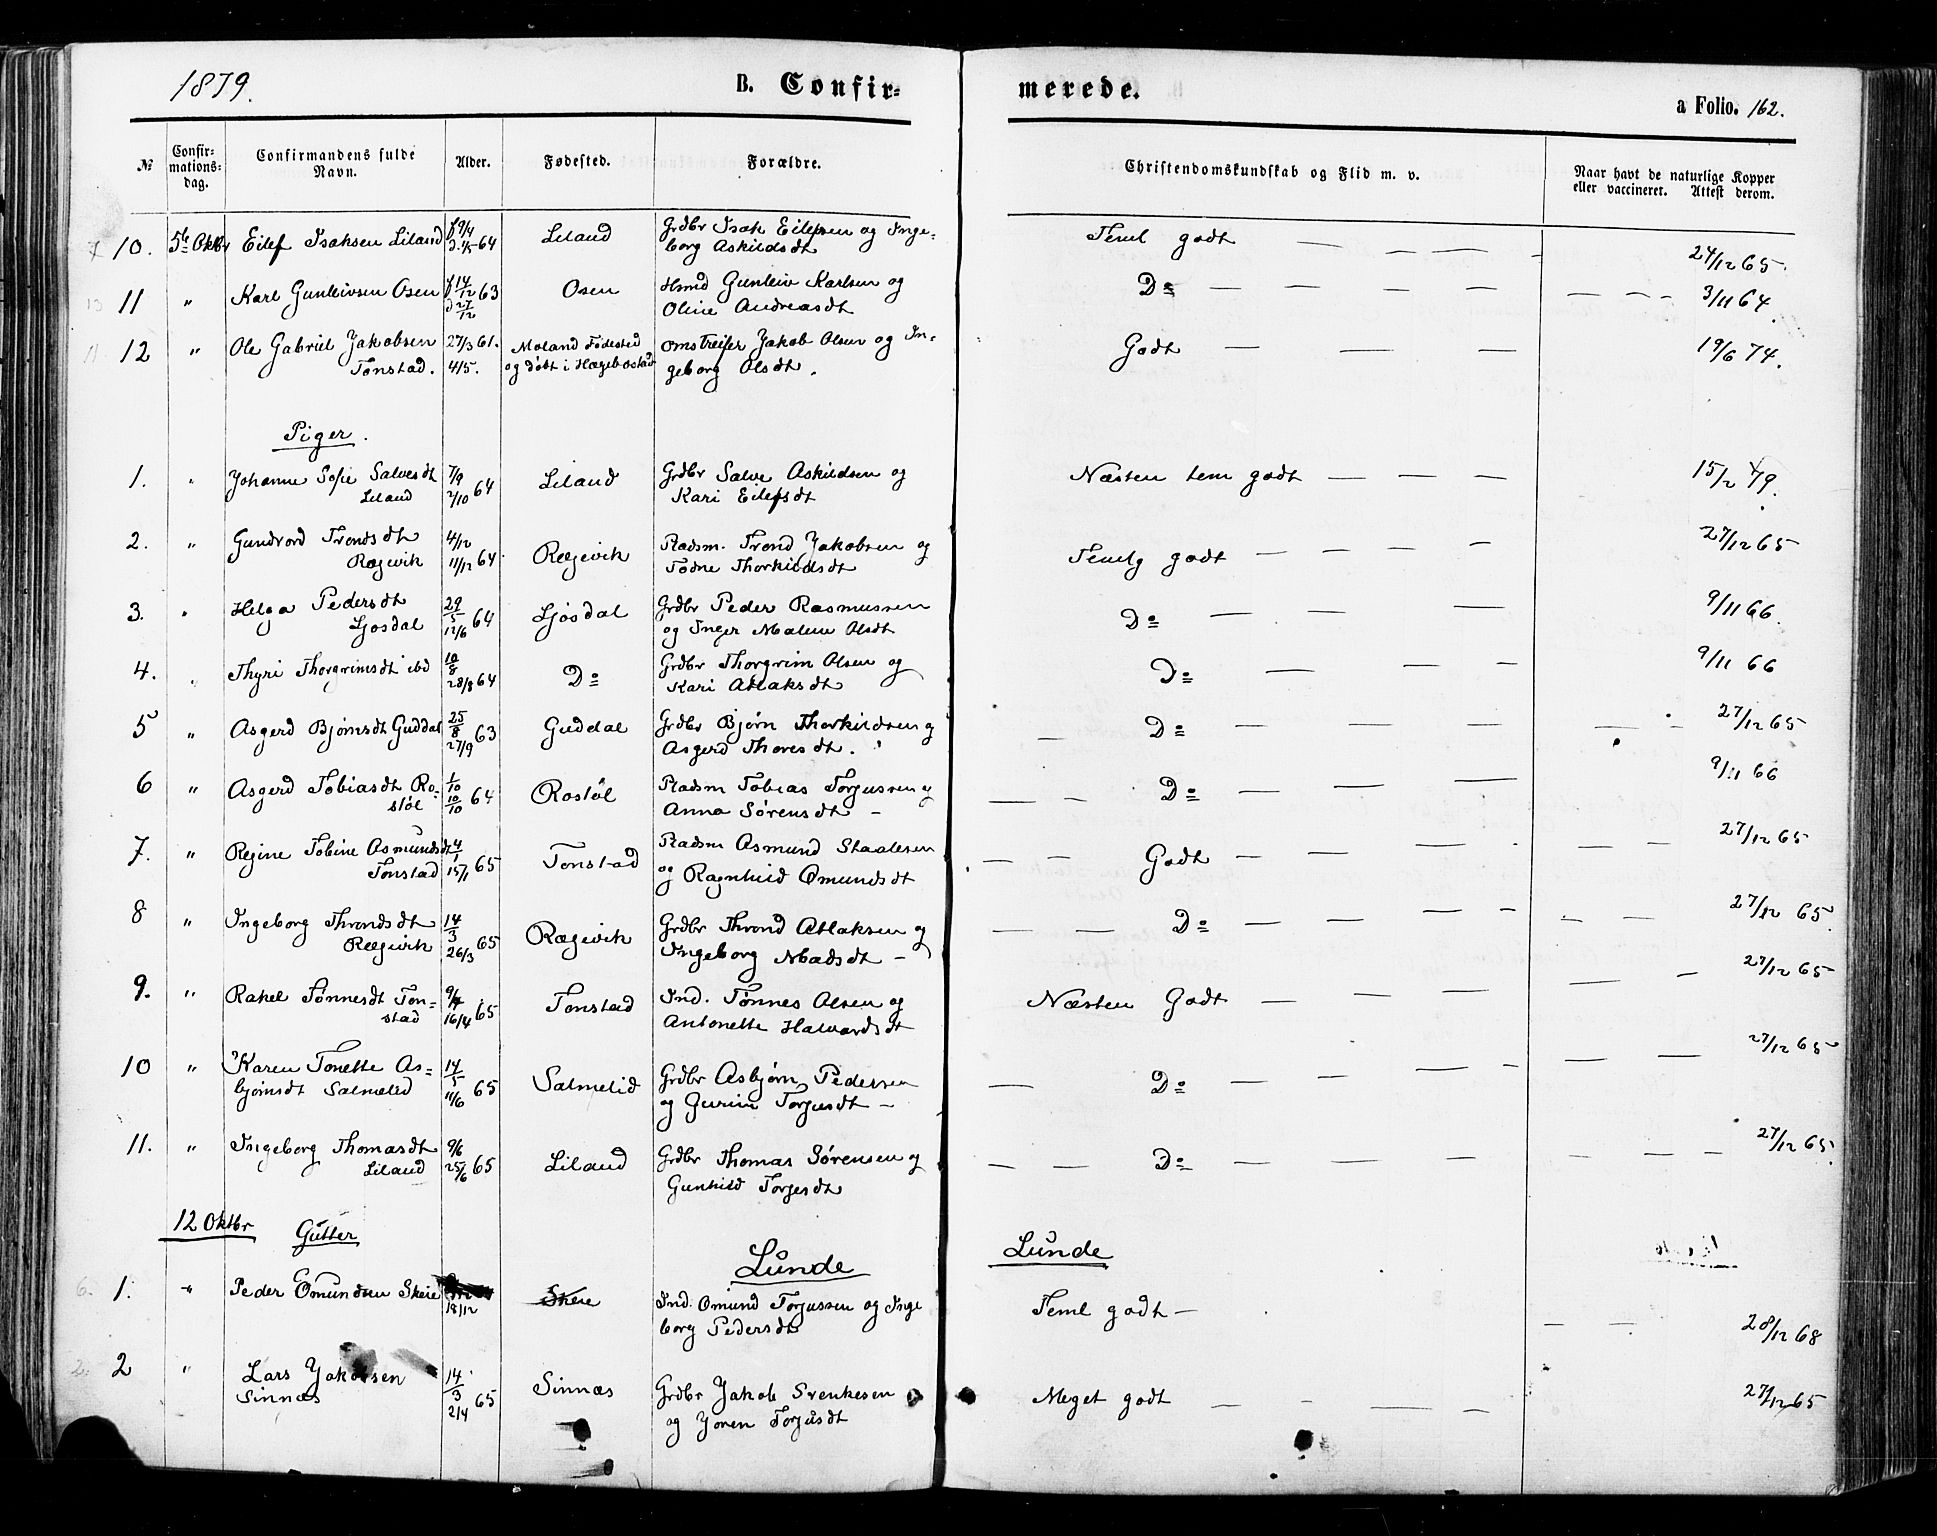 1879.
B. Confir=
merede.
a Folio. 162.
№
Confir=
mations=
dag.
Confirmandens fulde
Navn.
Alder.
Fødested.
Forældre.
Christendomskundskab og Flid m. v.
Naar havt de naturlige Kopper
eller vaccineret. Attest derom.
10. 5te Oktbr Eilef Isaksen Liland f 9/4 64 Liland Grdbr Isak Eilefsen og Inge=
borg Askildsdt
Teml godt — — — — 24/12 65.
11 " Karl Gunleivsen Osen f 14/12 63 Osen Hsmd Gunleiv Karlsen og
d 27/12 Oline Andreasdt
Do — — — — — — — 3/11 64.
12 " Ole Gabriel Jakobsen 27/3 61. Moland Fødested omstreifer Jakob Olsen og In=
Tonstad. 4/5. og døbt i Hægebostad geborg Olsdt.
Godt — — — — — 19/6 74.
Piger.
1. " Johanne Sofie Salvesdt 7/9 64 Liland Grdbr Salve Askildsen og
Liland 2/10 Kari Eilefsdt
Næsten tem godt — — — — 15/2 79.
2. " Gundvord Trondsdt 4/12 64 Regevik Pladsm. Trond Jakobsen og
Rægevik 11/12 Todne Thorkildsdt
Temlg godt — — — — — 27/12 65
3. " Helga Pedersdt 29/5 64 Ljosdal Grdbr Peder Rasmussen
Ljosdal 12/6 og Inger Malene Olsdt
Do — — — — 9/11 66.
4. " Thyri Thorgrimsdt ibd 10/8 64 Do Grdbr Thorgrim Olsen og
28/8 Kari Atlaksdt
Do — — — — 9/11 66
5 " Asgerd Bjørnsdt Guddal 25/8 63 Guddal Grdbr Bjørn Thorkildsen og
27/9 Asgerd Thoresdt.
— Do — — — — — — 27/12 65
6 " Asgerd Tobiasdt Ro= 1/10 64 Rostøl Pladsm Tobias Torjussen og
støl 10/10 Anna Sørensdt —
— — Do — — — — 9/11 66
7. " Regine Tobine Asmundsdt 4/1 65 Tonstad Pladsm Asmund Staalesen
Tonstad 15/1 og Ragnhild Omundsdt
— — Godt — — — — — — — 27/12 65
8 " Ingeborg Throndsdt 14/3 65 Rægevik Grdbr Thrond Atlaksen og
Rægevik 26/3 Ingeborg Madsdt —
— — Do — — — — — — — 27/12 65.
9. " Rakel Tønnesdt Ton= 9/4 65 Tonstad Ind. Tønnes Olsen og
stad 16/4 Antonette Halvardsdt
Næsten Godt — — — — — — 27/12 65
10 " Karen Tonette As= 14/5 65 Salmelid Grdbr Asbjørn Pedersen
bjørnsdt Salmelid 11/6 og Gurine Torjusdt —
— Do — — — — — — — 27/12 65
11. " Ingeborg Thomasdt 9/6 65 Liland Grdbr Thomas Sørensen og
Liland 25/6 Gunhild Torjesdt
— — Do — — — — — — — 27/12 65.
12 Oktbr Gutter
Lunde Lunde
1. " Peder Omundsen Skeie 18/12 Skeie Ind. Omund Torjussen og Inge
borg Pedersdt
Teml godt — — — 28/12 68
2 " Lars Jakobsen 14/3 65 Sinnæs Grdbr Jakob Svenkesen
Sinnæs 2/4 og Joren Torjusdt
Meget godt — — — — — 27/12 65